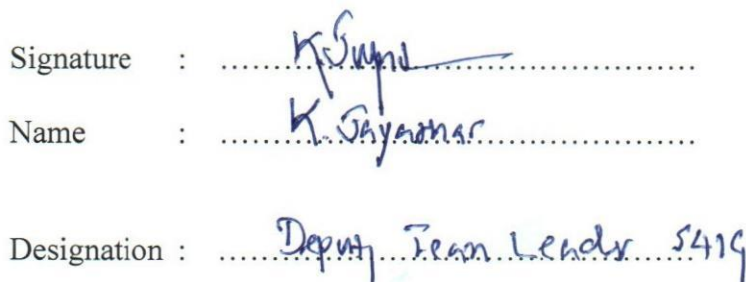 Signature :
Name : K. Jayasnar
Designation : Deputy Team Leader